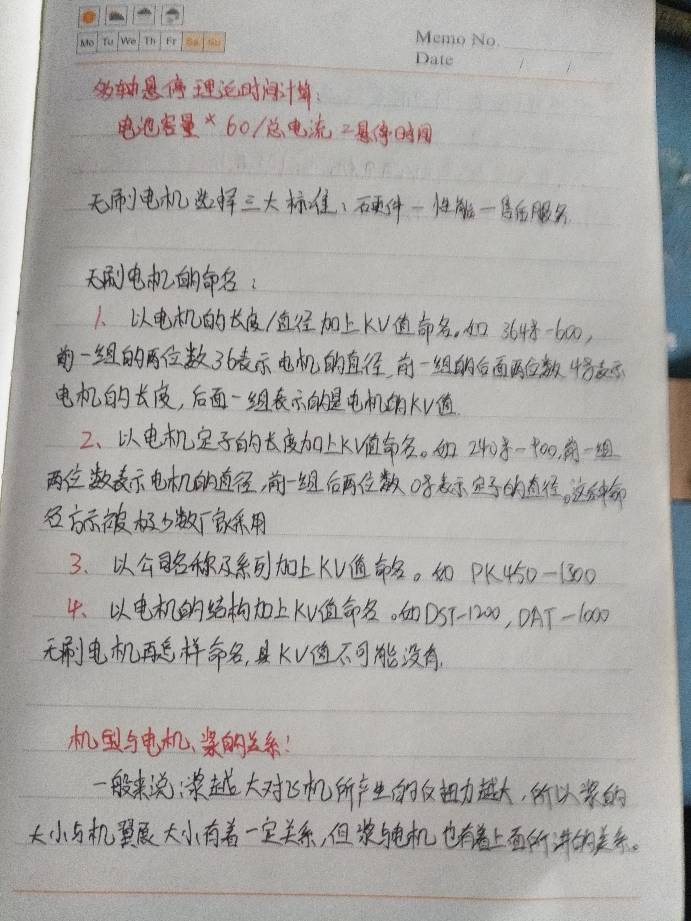 Mo Tu We Th Fr Sa Su
Memo No.
Date / /
多轴悬停理论时间计算:
电池容量*60/总电流=悬停时间
无刷电机选择三大标准:硬件-性能-售后服务
无刷电机的命名:
1、以电机的长度/直径加上KV值命名。如 3648-600,
前一组的两位数36表示电机的直径,前一组的后面两位数48表示
电机的长度,后面一组表示的是电机的KV值.
2、以电机定子的长度加上KV值命名。如 2408-900,前一组
两位数表示电机的直径,前一组后两位数08表示定子的直径。这种命
名方示被极少数厂家采用
3、以公司名称及系列加上KV值命名。如 PK450-1300
4、以电机的结构加上KV值命名。如DST-1200,DAT-1000
无刷电机再怎样命名,其KV值不可能没有.
机型与电机、桨的关系!
一般来说:桨越大对飞机所产生的反扭力越大,所以桨的
大小与机翼展大小有着一定关系,但桨与电机也有着上面所讲的关系。